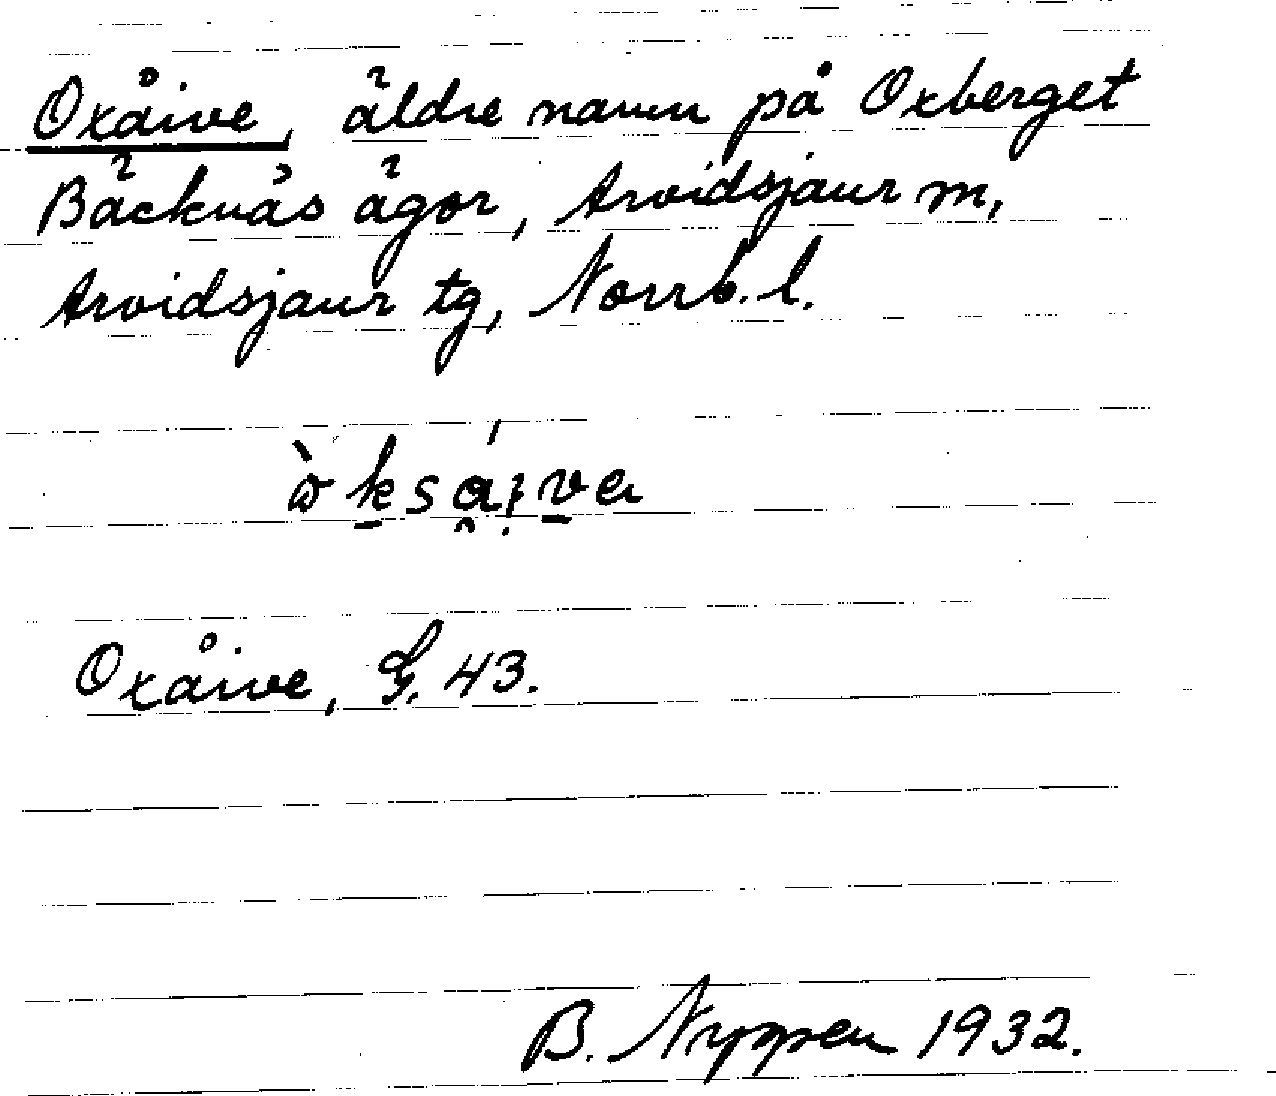 Oxåive, äldre namn på Oxberget
Bäcknäs ägor, Arvidsjaur m,
Arvidsjaur tg, Norrb. l.
Oxåive, G. 43.
B. Nyppen 1932.